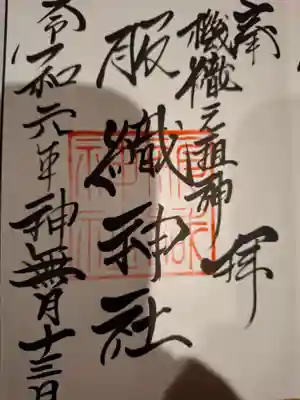 奉拝
機織元祖神
服織神社
令和六年神無月十三日